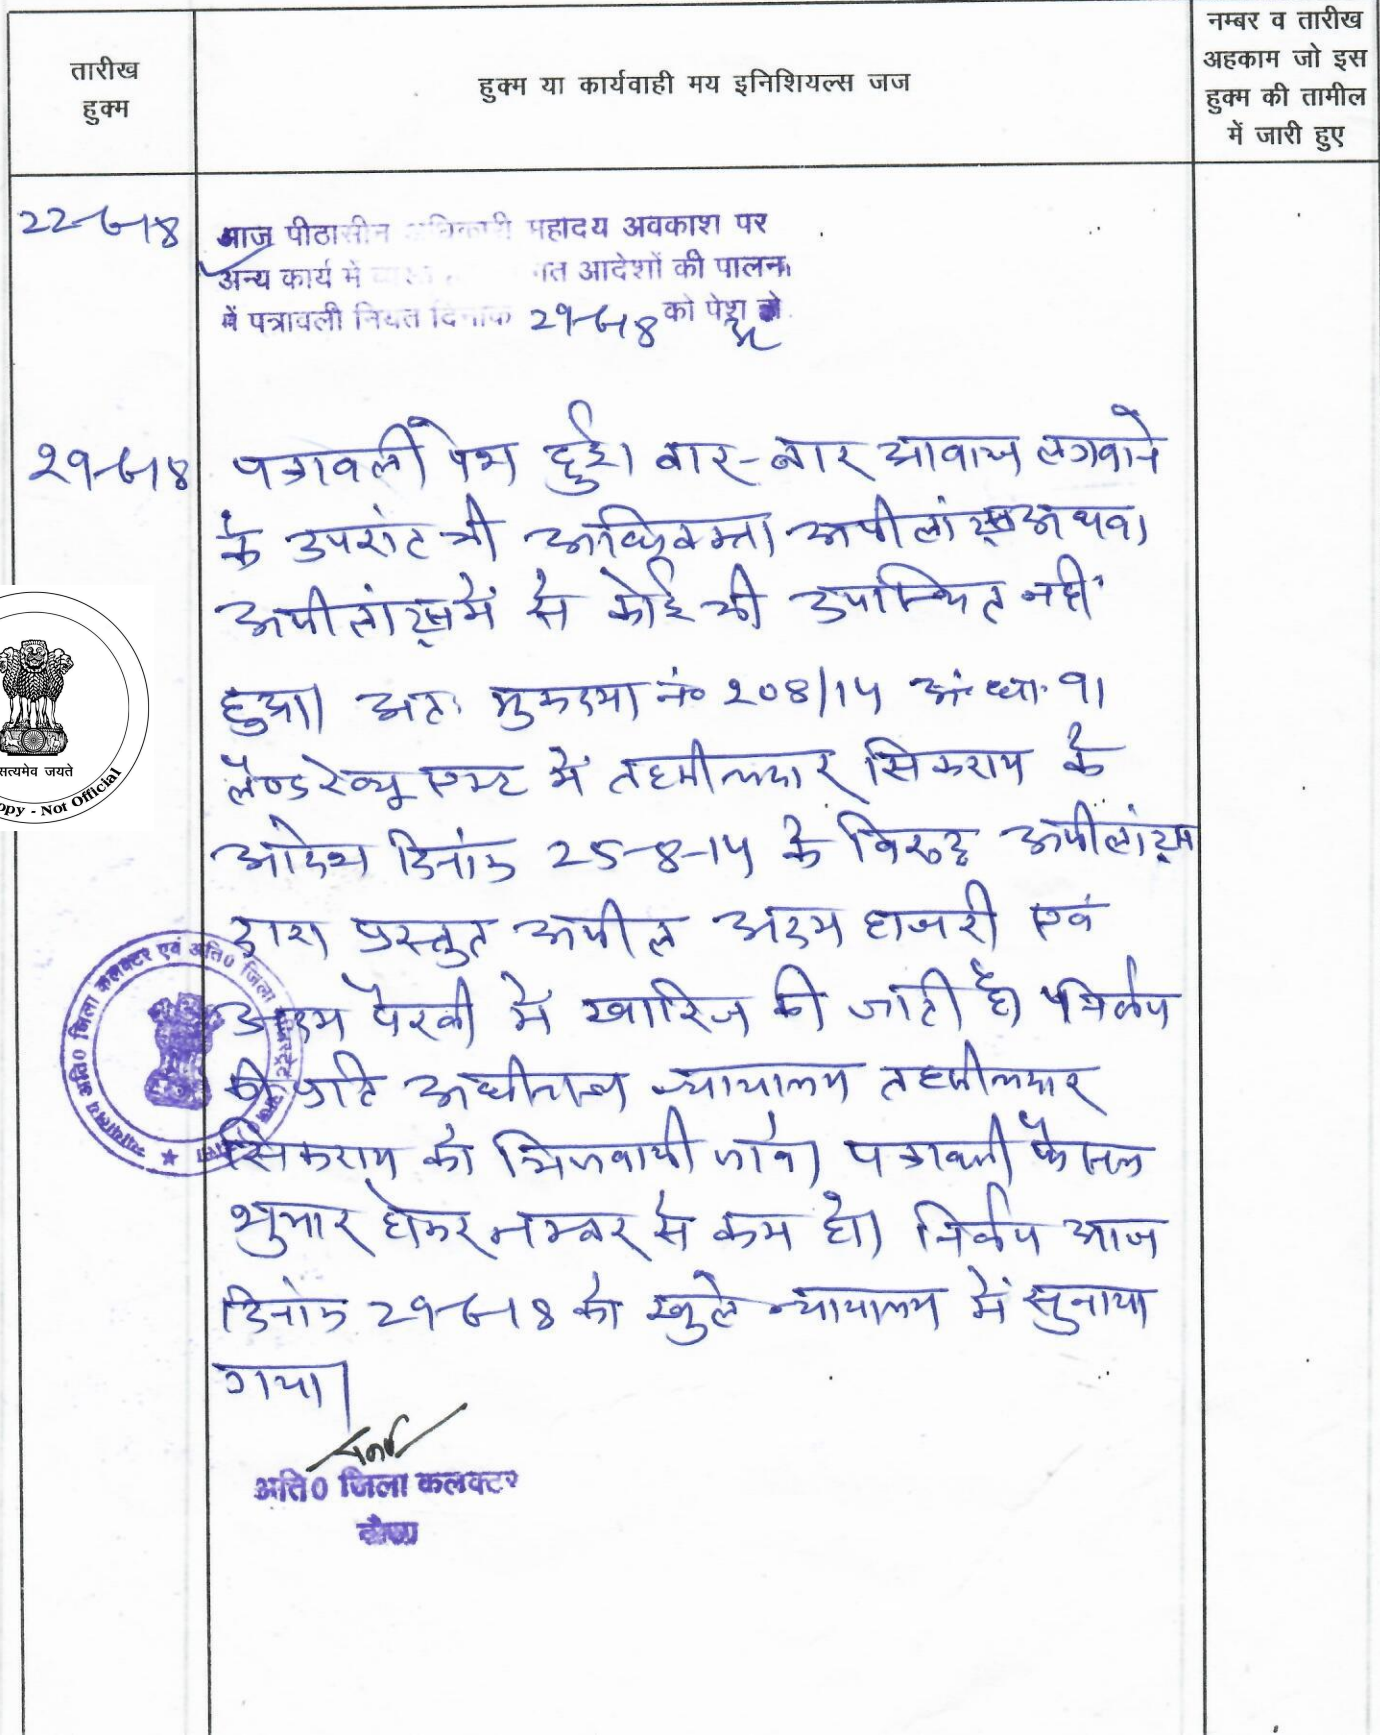 तारीख
हुक्म
हुक्म या कार्यवाही मय इनिशियल्स जज
नम्बर व तारीख
अहकाम जो इस
हुक्म की तामील
में जारी हुए
22-6-18
आज पीठासीन अधिकारी महोदय अवकाश पर
अन्य कार्य में आदेशों की पालना
में पत्रावली नियत दिनांक 29-6-18 को पेश हो
29-6-18
पत्रावली पेश हुई। बार-बार आवाज लगवाने
के उपरांत भी अधिवक्ता अपीलांट्स अथवा
अपीलांट्स में से कोई भी उपस्थित नहीं
हुआ। अतः मुकदमा नं० 208/14 अं. धा. 91
लैण्ड रेव्यू एक्ट में तहसीलदार सिकराय के
आदेश दिनांक 25-8-14 के विरुद्ध अपीलांट्स
द्वारा प्रस्तुत अपील अदम हाजरी एवं
अदम पैरवी में खारिज की जाती है। निर्णय
की प्रति अधीनस्थ न्यायालय तहसीलदार
सिकराय को भिजवायी जावे। पत्रावली फैसल
शुमार होकर नम्बर से कम हो। निर्णय आज
दिनांक 29-6-18 को खुले न्यायालय में सुनाया
गया।
अति० जिला कलक्टर
दौसा
सत्यमेव जयते
opy - Not Official
न्यायालय अति० जिला कलक्टर एवं अति० जिला